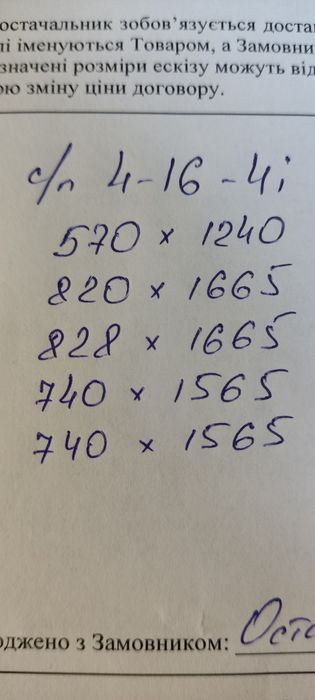 остачальник зобов’язується доста
лі іменуються Товаром, а Замовни
значені розміри ескізу можуть від
ою зміну ціни договору.
с/п 4-16-4і
570 × 1240
820 × 1665
828 × 1665
740 × 1565
740 × 1565
оджено з Замовником: Оста